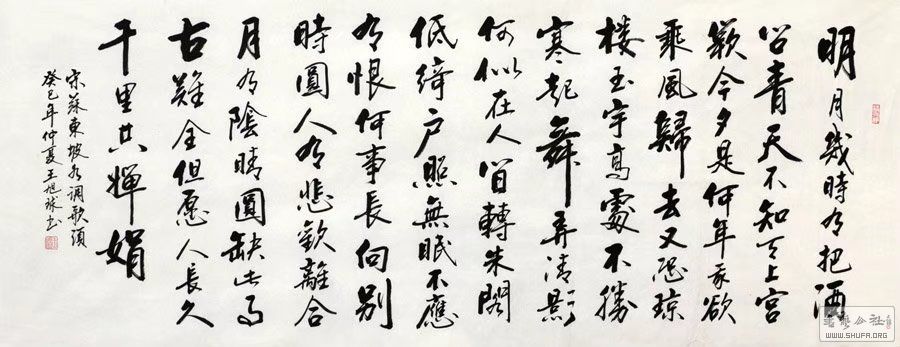 明月幾時有把酒
問青天不知天上宮
闕今夕是何年我欲
乘風歸去又恐琼
楼玉宇高處不勝
寒起舞弄清影
何似在人間轉朱閣
低綺户照無眠不應
有恨何事長向别
時圓人有悲歡離合
月有陰晴圓缺此事
古難全但愿人長久
千里共嬋娟
宋蘇東坡水调歌頭
癸巳年仲夏王旭书
書學公社
WWW.SHUFA.ORG